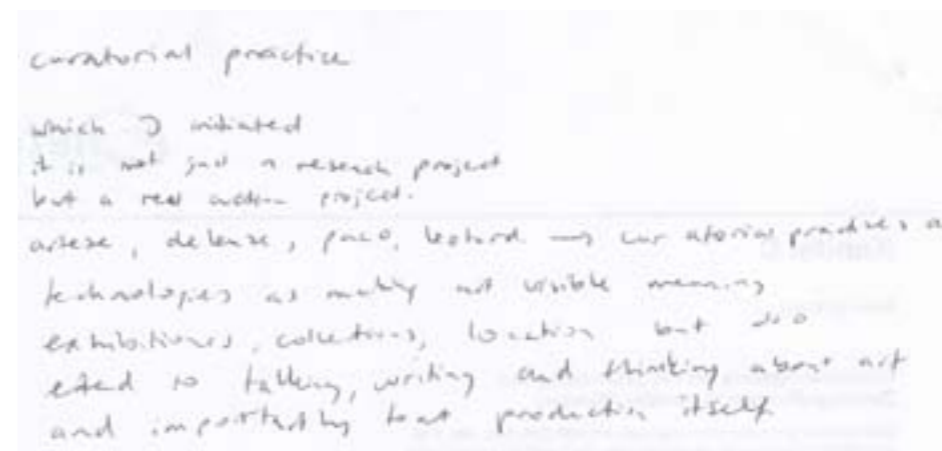 curatorial practice
which I initiated
it is not just a research project
but a real action project.
curatorial practices a
technologies as making art visible meaning
exhibitions, collections, location but also
to talking, writing and thinking about art
and importantly that production itself